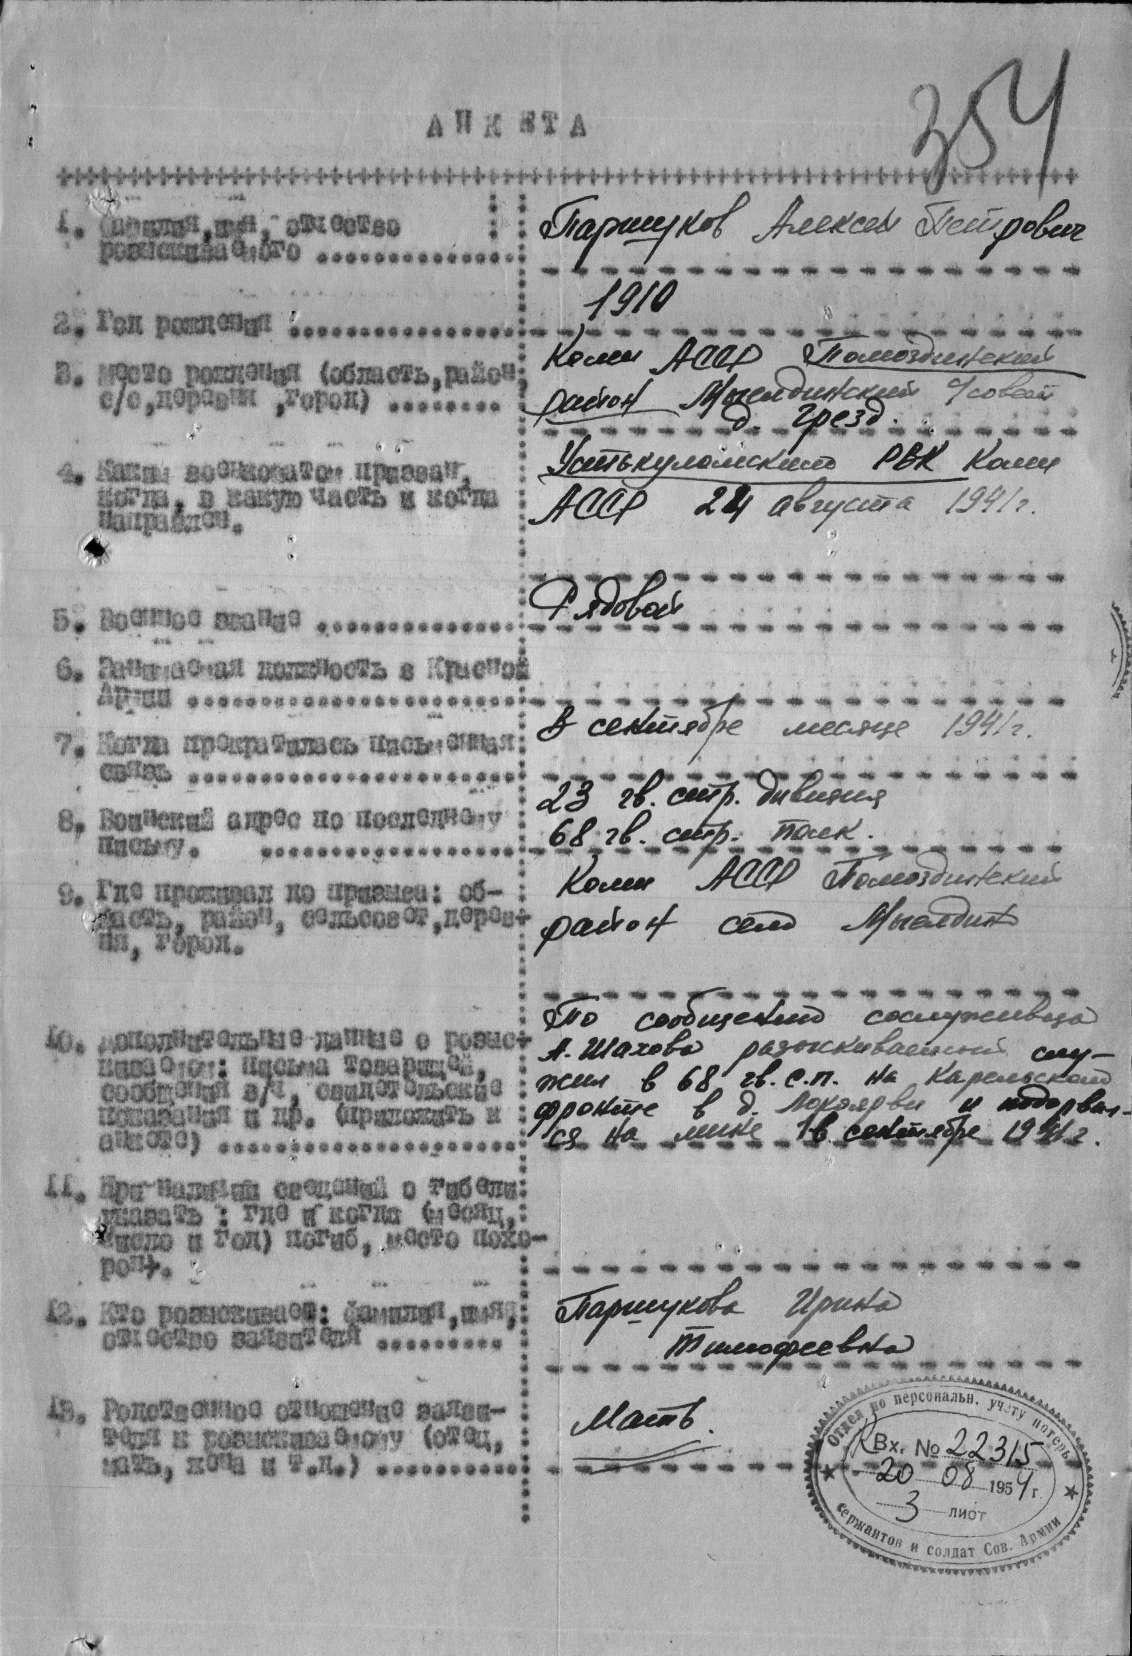 354
АНКЕТА
1. Фамилия, имя, отчество
разыскиваемого
Паршуков Алексей Петрович
2. Год рождения
1910
3. Место рождения (область, район,
с/с, деревня, город)
Коми АССР Помоздинский
район Мыелдинский с/совет
д. Грезд.
4. Каким военкоматом призван,
когда, в какую часть и когда
направлен.
Устькуломским РВК Коми
АССР 24 августа 1941 г.
5. Военное звание
Рядовой
6. Занимаемая должность в Красной
Армии
7. Когда прекратилась письменная
связь
В сентябре месяце 1941 г.
8. Воинский адрес по последнему
письму.
23 гв. стр. дивизия
68 гв. стр. полк.
9. Где проживал до призыва: об-
ласть, район, сельсовет, дерев-
ня, город.
Коми АССР Помоздинский
район село Мыелдин
10. Дополнительные данные о розыс-
киваемом: письма товарищей,
сообщения в/ч, свидетельские
показания и др. (приложить к
анкете)
По сообщению сослуживца
А. Шахова разыскиваемый слу-
жил в 68 гв. с.п. на Карельском
фронте в д. и подорвал-
ся на мине в сентябре 1941 г.
11. При наличии сведений о гибели
указать: где и когда (месяц,
число и год) погиб, место похо-
рон.
12. Кто розыскивает: фамилия, имя,
отчество заявителя
Паршукова Ирина
Тимофеевна
13. Родственное отношение заяви-
теля к розыскиваемому (отец,
мать, жена и т.д.)
Мать.
Отдел по персональн. учету потерь
Вх. № 22315
20 08 1954 г.
3 лист
сержантов и солдат Сов. Армии